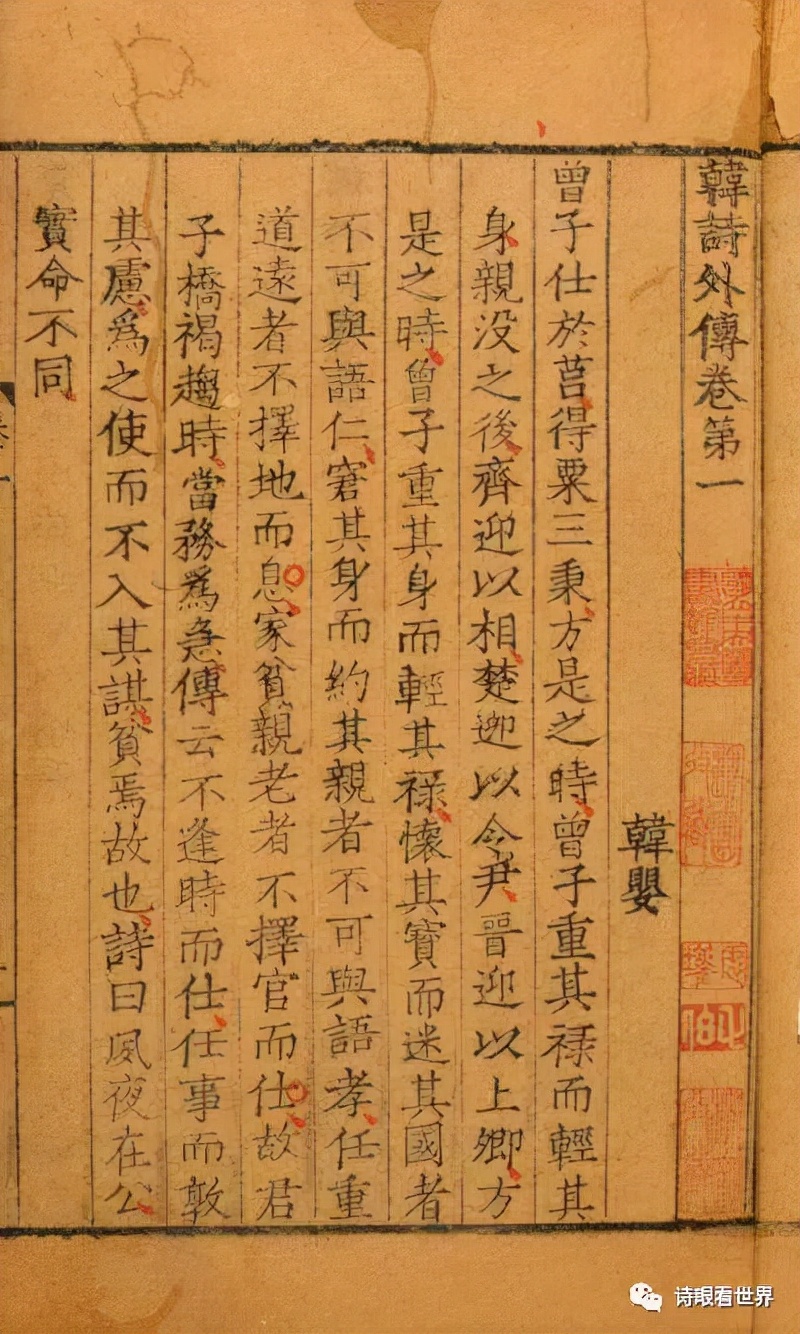 韓詩外傳卷第一
韓嬰
曾子仕於莒得粟三秉方是之時曾子重其祿而輕其
身親没之後齊迎以相楚迎以令尹晉迎以上卿方
是之時曾子重其身而輕其祿懷其寶而迷其國者
不可與語仁窘其身而約其親者不可與語孝任重
道遠者不擇地而息家貧親老者不擇官而仕故君
子橋褐趨時當務爲急傳云不逢時而仕任事而敦
其慮爲之使而不入其謀貧焉故也詩曰夙夜在公
實命不同
诗眼看世界